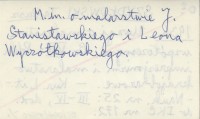 M.in. o malarstwie J.
Stanisławskiego i Leona
Wyczółkowskiego.